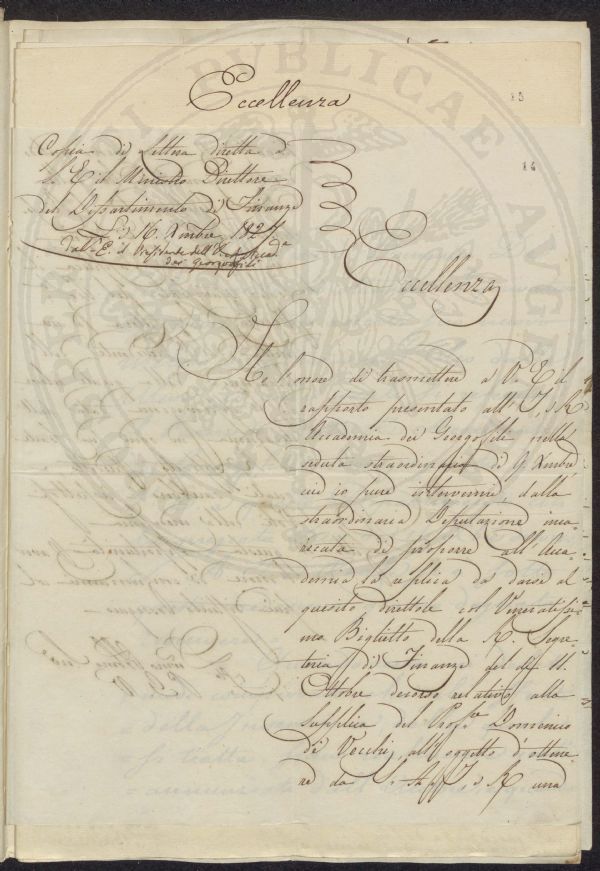 Eccellenza
13
14
Copia di Lettera diretta a
S. E. il Ministro Direttore
del Dipartimento di Finanze
li 16. Xmbre 1827
dall'E. il Presidente dell'
dei Georgofili
Eccellenza
Ho l'onore di trasmettere a V. E. il
rapporto presentato all'I. R.
Accademia dei Georgofili nella
seduta straordinaria de 9 Xmbre
cui io pure intervenni, dalla
straordinaria Deputazione inca-
ricata di proporre all'Acca-
demia la replica da darsi al
quesito direttole col Veneratissi-
mo Biglietto della R. Segre-
teria di Finanze del dì 11.
Ottobre decorso relativo alla
supplica del Prof.re Domenico
di Vecchj, all'oggetto d'ottene-
re da S. A. I. e R. una